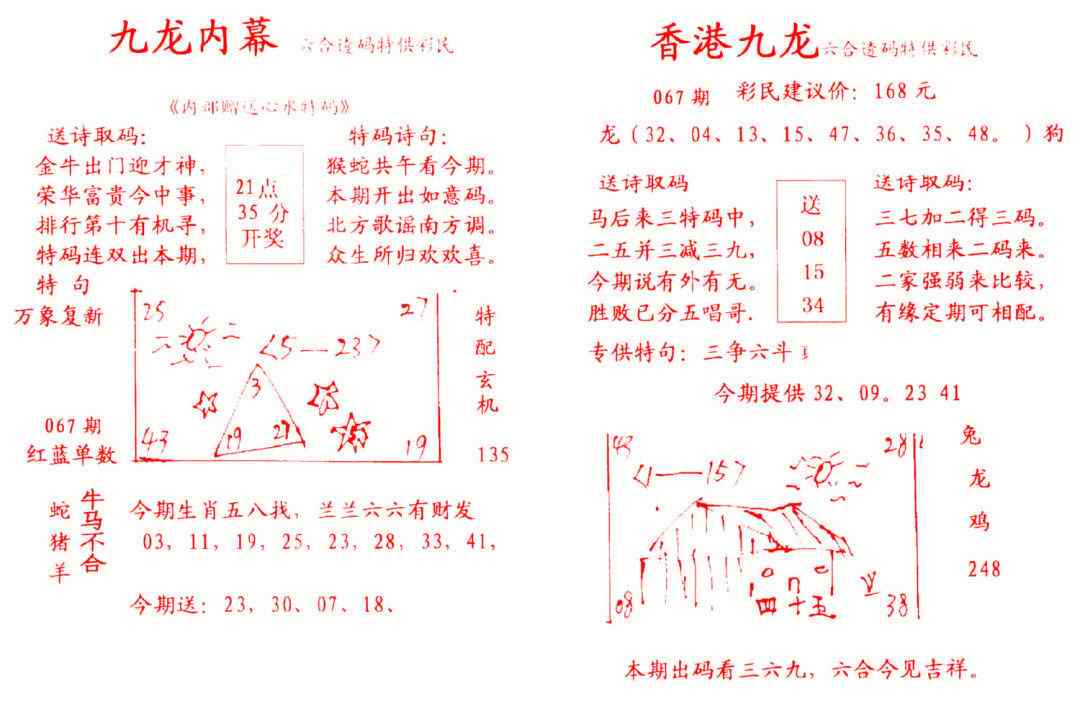 九龙内幕 六合透码特供彩民
《内部赠送心水特码》
送诗取码:
金牛出门迎才神，
荣华富贵今中事，
排行第十有机寻，
特码连双出本期，
特 句
万象复新
21点
35 分
开奖
特码诗句:
猴蛇共午看今期。
本期开出如意码。
北方歌谣南方调。
众生所归欢欢喜。
067 期
红蓝单数
25
27
<5—23>
3
19
27
43
19
特配玄机
135
蛇猪羊
牛马不合
今期生肖五八找，兰兰六六有财发
03, 11, 19, 25, 23, 28, 33, 41,
今期送: 23, 30、07、18、
香港九龙 六合透码特供彩民
067 期 彩民建议价: 168 元
龙（32、04、13、15、47、36、35、48。）狗
送诗取码
马后来三特码中，
二五并三减三九，
今期说有外有无。
胜败已分五唱哥.
送
08
15
34
送诗取码:
三七加二得三码。
五数相来二码来。
二家强弱来比较，
有缘定期可相配。
专供特句: 三争六斗
今期提供 32、09。23 41
43
28
<1—15>
四十五
08
38
兔
龙
鸡
248
本期出码看三六九，六合今见吉祥。